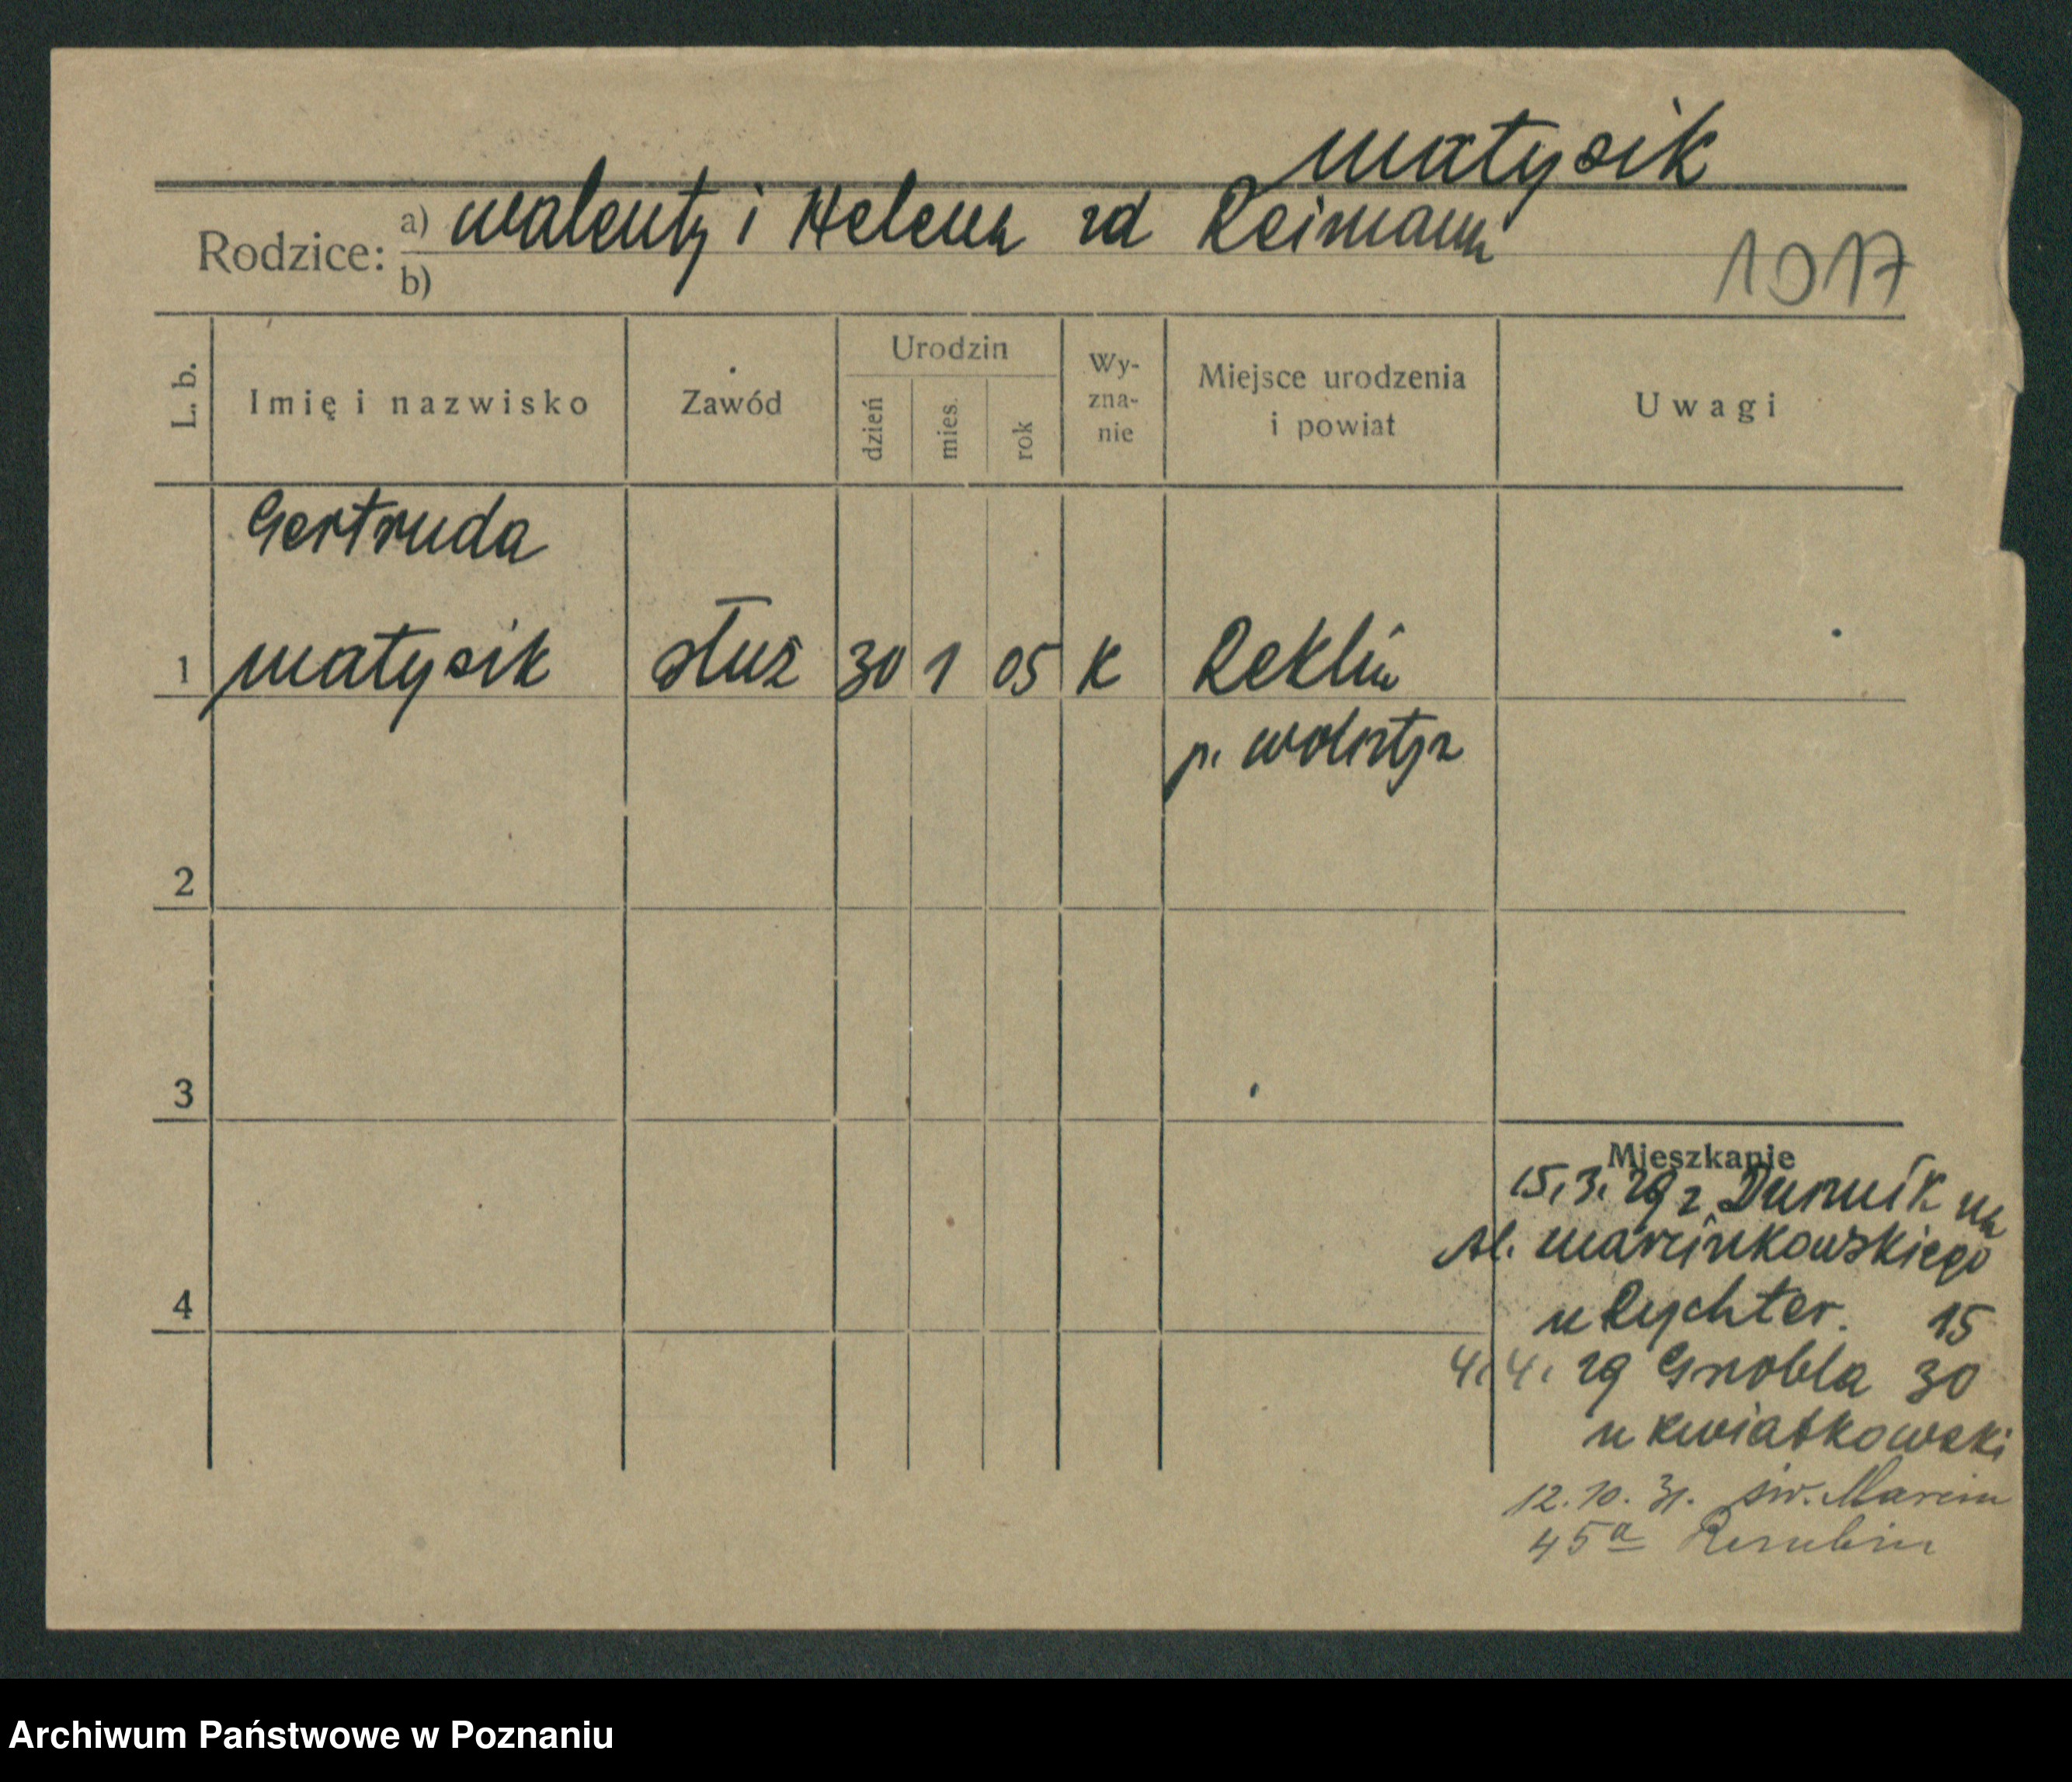 Matysik
Rodzice: a) Walenty i Helena zd Reimann
b)
1017
L. b.
Imię i nazwisko
Zawód
Urodzin
dzień
mies.
rok
Wy-
zna-
nie
Miejsce urodzenia
i powiat
Uwagi
Gertruda
1 Matysik służ 30 1 05 K Reklin
p. Wolsztyn
2
3
4
Mieszkanie
15.3.29 z na
Al. Marcinkowskiego
u Rychter. 15
4.4.29 Grobla 30
u Kwiatkowski
12.10.31. św. Marcin
45a
Archiwum Państwowe w Poznaniu